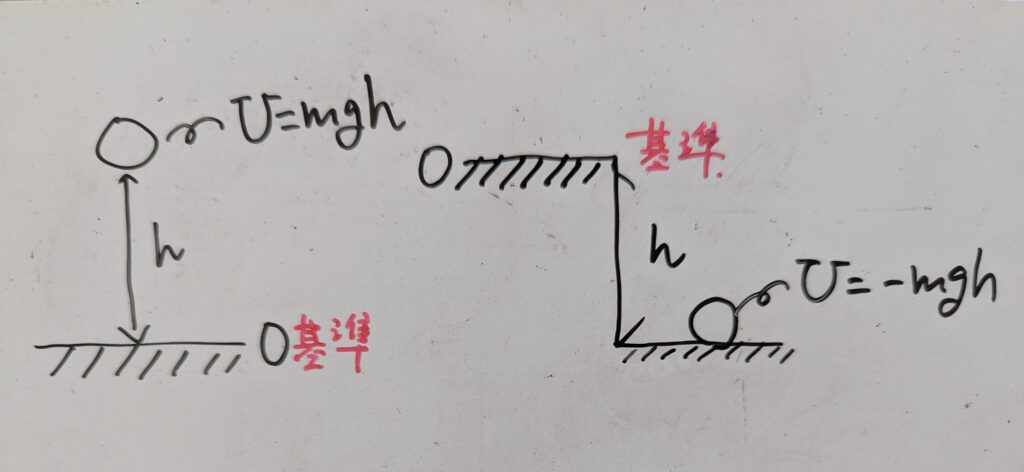 U=mgh
h
0基準
0
基準
h
U=-mgh